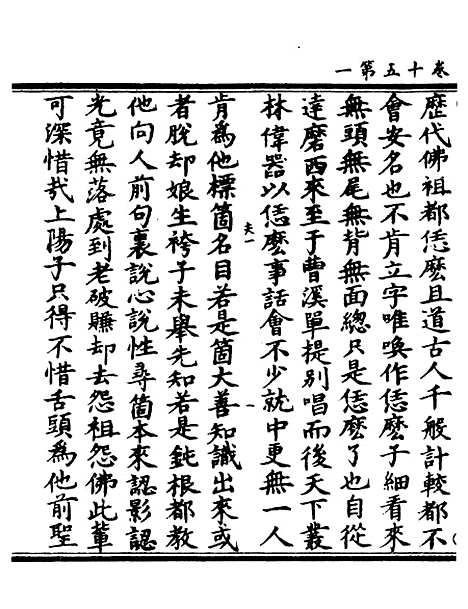 卷十五第一
歷代佛祖都恁麼且道古人千般計較都不
會安名也不肯立字唯喚作恁麼子細看來
無頭無尾無背無面總只是恁麼了也自從
達磨西來至于曹溪單提別唱而後天下叢
林偉器以恁麼事話會不少就中更無一人
夫一
肯為他標箇名目若是箇大善知識出來或
者脫却娘生袴子未舉先知若是鈍根都教
他向人前句裏說心說性尋箇本來認影認
光竟無落處到老破賺却去怨祖怨佛此輩
可深惜哉上陽子只得不惜舌頭為他前聖